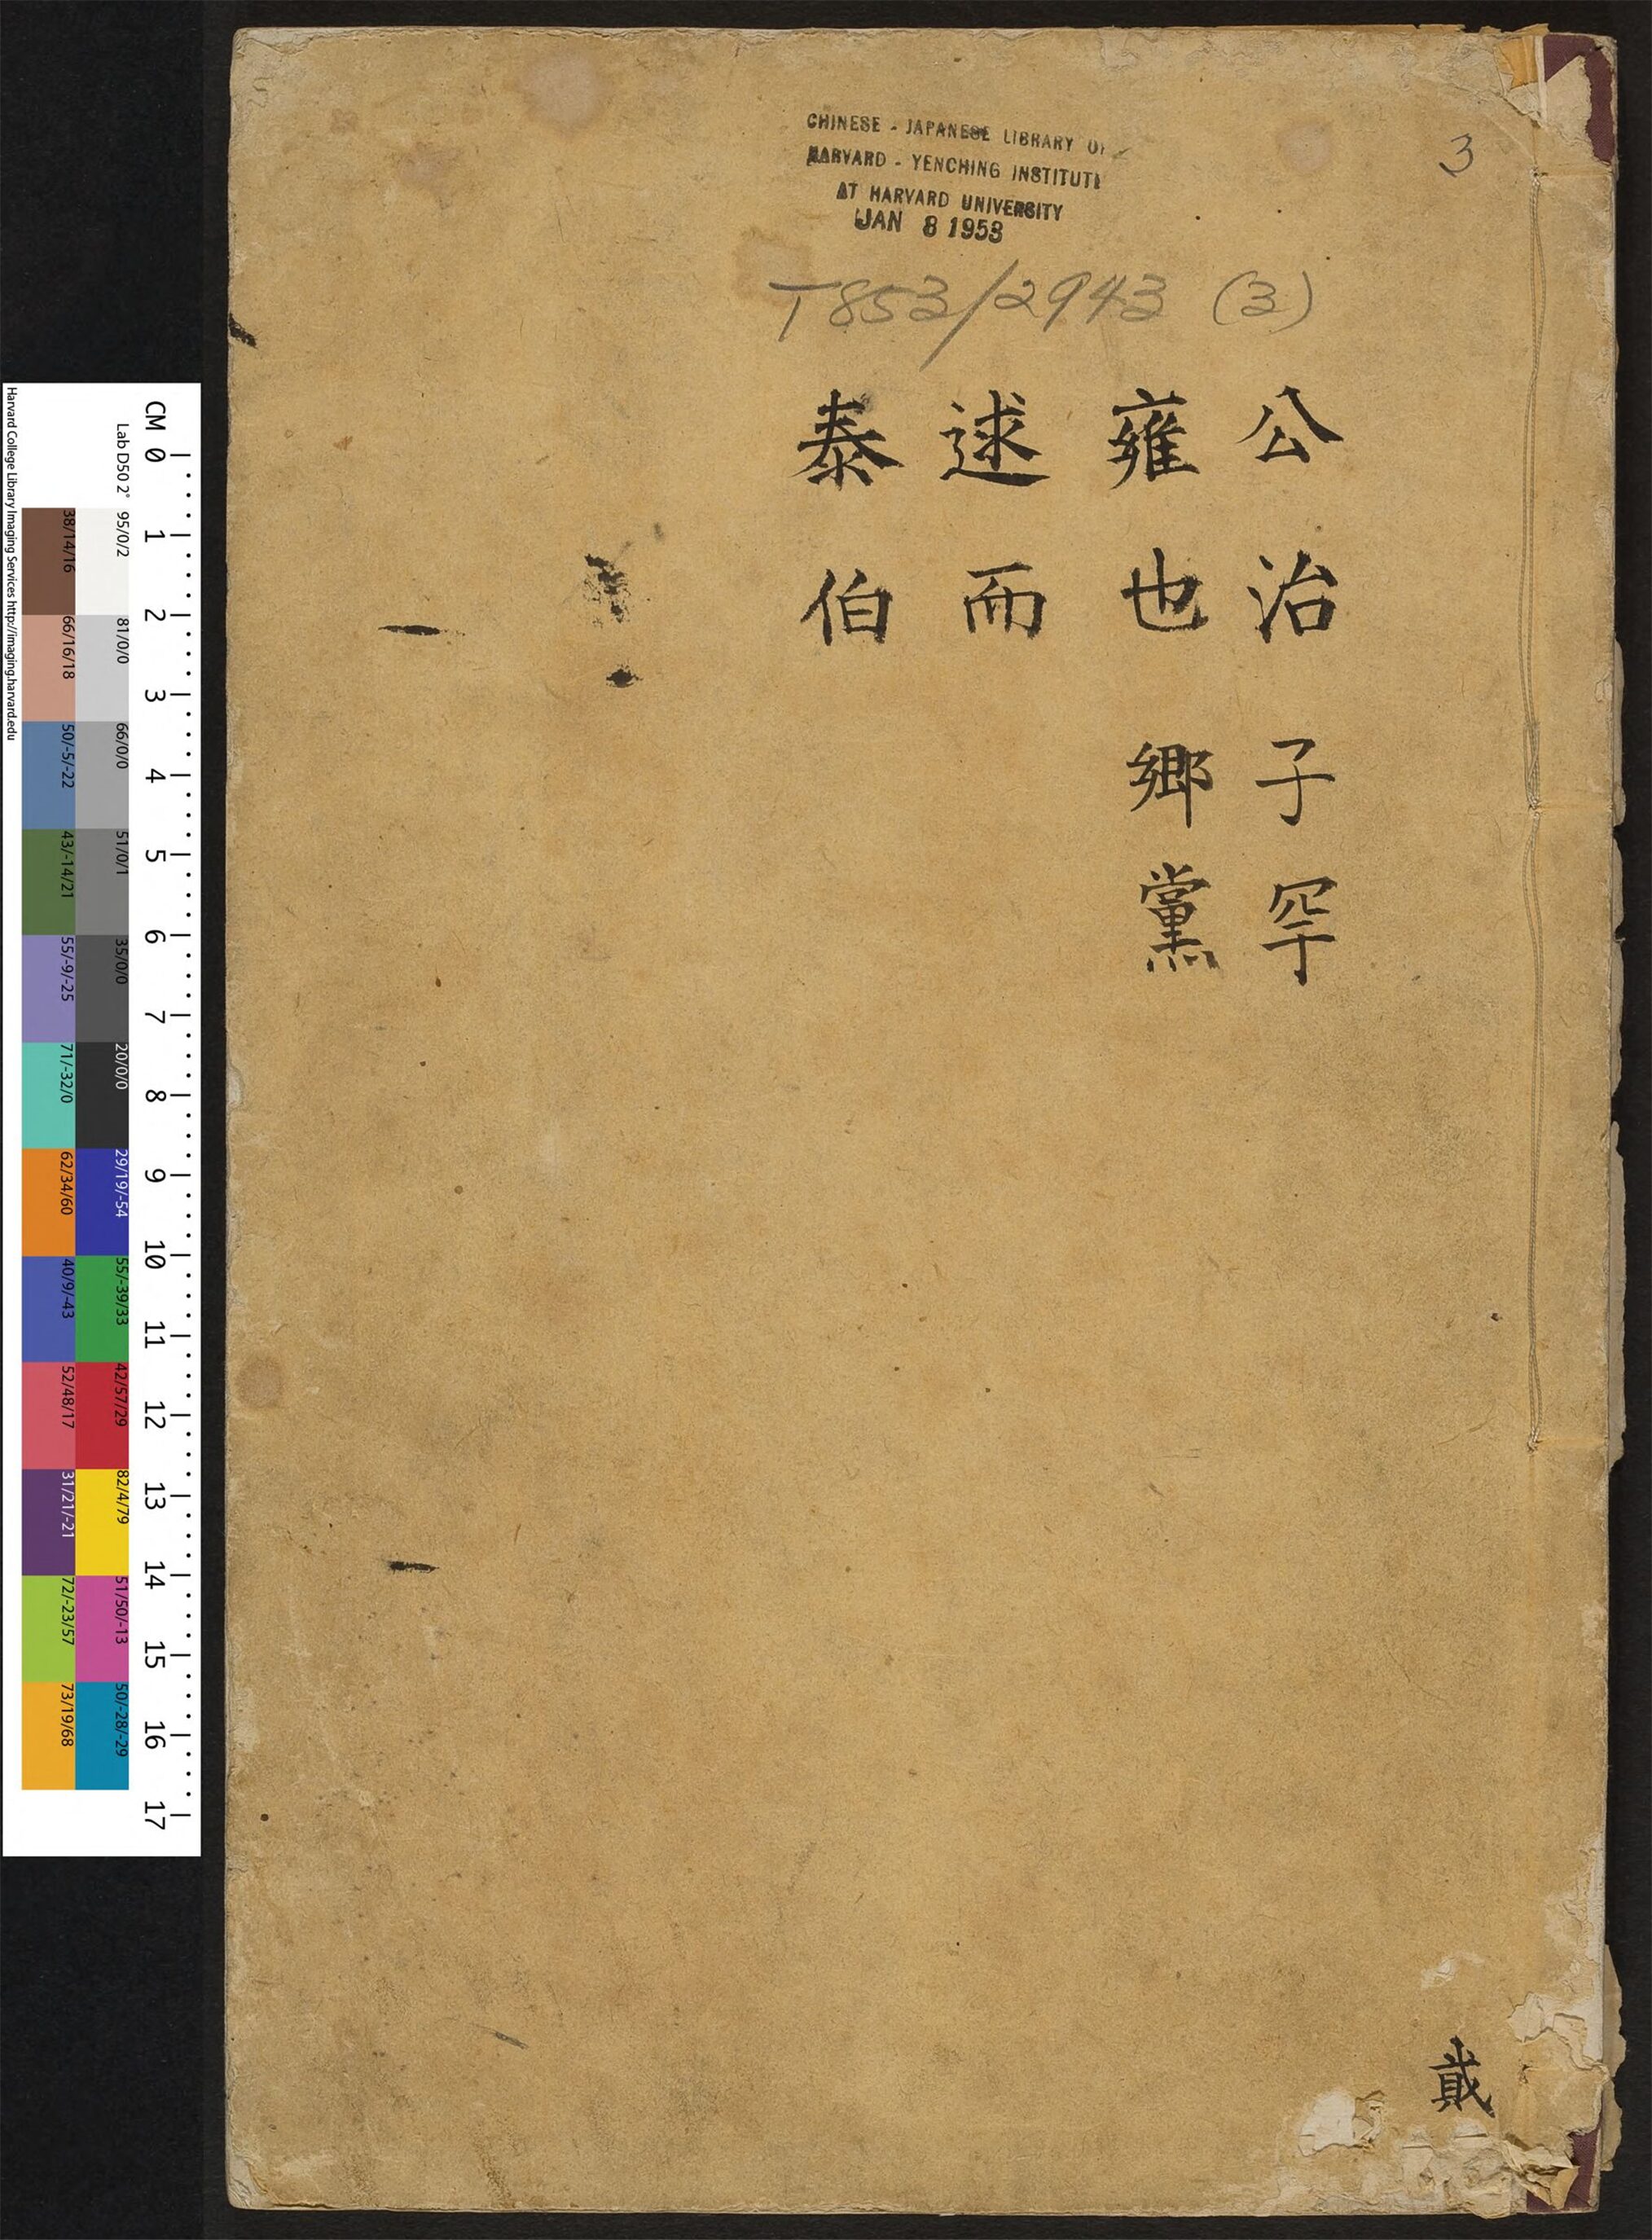 CHINESE - JAPANESE LIBRARY OF
HARVARD - YENCHING INSTITUTE
AT HARVARD UNIVERSITY
JAN 8 1953
3
T853/2943 (3)
公治 子罕
雍也 鄉黨
逑而
泰伯
貳
CM 0 1 2 3 4 5 6 7 8 9 10 11 12 13 14 15 16 17
Lab D50 2° 95/0/2 81/0/0 66/0/0 51/0/1 35/0/0 20/0/0 29/19/-54 55/-39/33 42/57/29 82/4/79 51/50/-13 50/-28/-29
38/14/16 66/16/18 50/-5/-22 43/-14/21 55/-9/-25 71/-32/0 62/34/60 40/9/-43 52/48/17 31/21/-21 72/-23/57 73/19/68
Harvard College Library Imaging Services http://imaging.harvard.edu